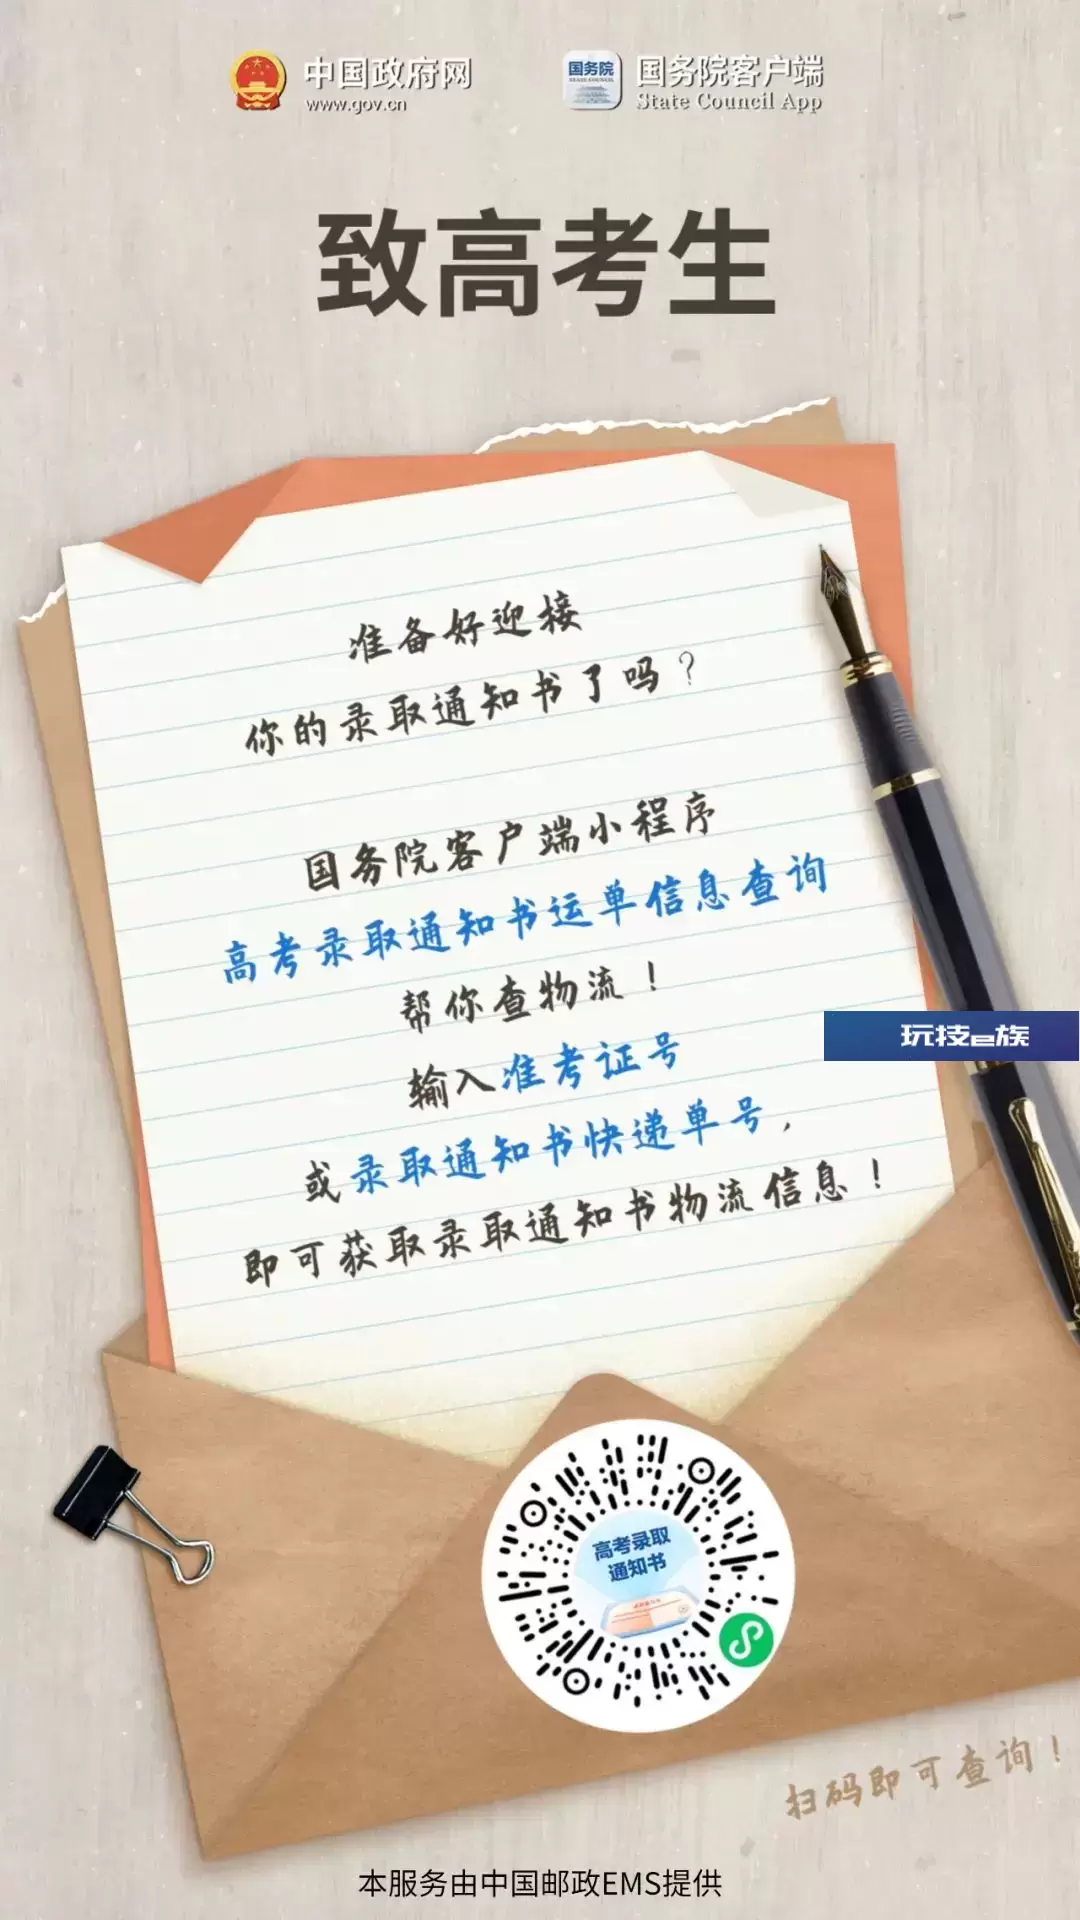 中国政府网
www.gov.cn
国务院
STATE COUNCIL
国务院客户端
State Council App
致高考生
准备好迎接
你的录取通知书了吗？
国务院客户端小程序
高考录取通知书运单信息查询
帮你查物流！
输入准考证号
或录取通知书快递单号，
即可获取录取通知书物流信息！
玩技e族
高考录取
通知书
扫码即可查询！
本服务由中国邮政EMS提供